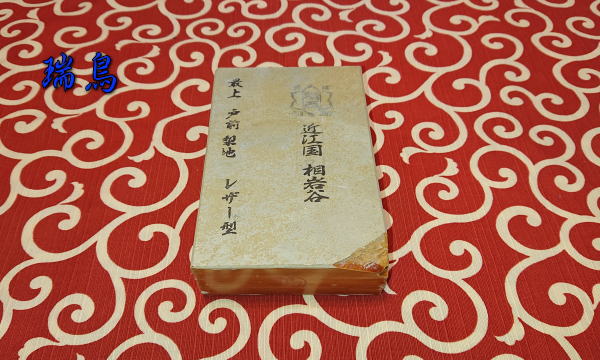 瑞鳥
近江国 相岩谷
最上 戸前 梨地 レザー型